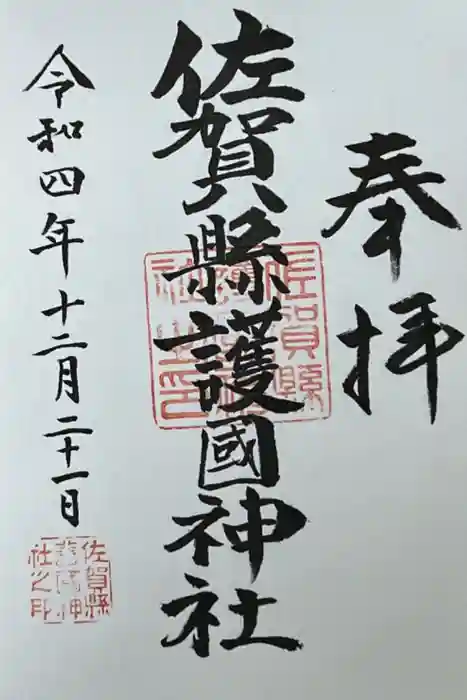 奉拝
佐賀縣護國神社
令和四年十二月二十一日
佐賀縣護國神社之印
佐賀縣護國神社之印